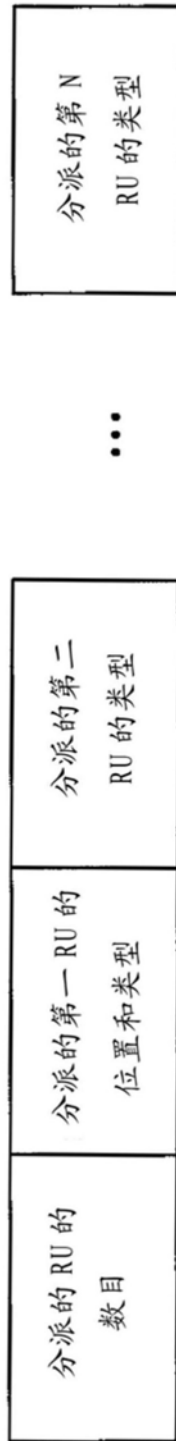 分派的 RU 的
数目
分派的第一 RU 的
位置和类型
分派的第二
RU 的类型
...
分派的第 N
RU 的类型